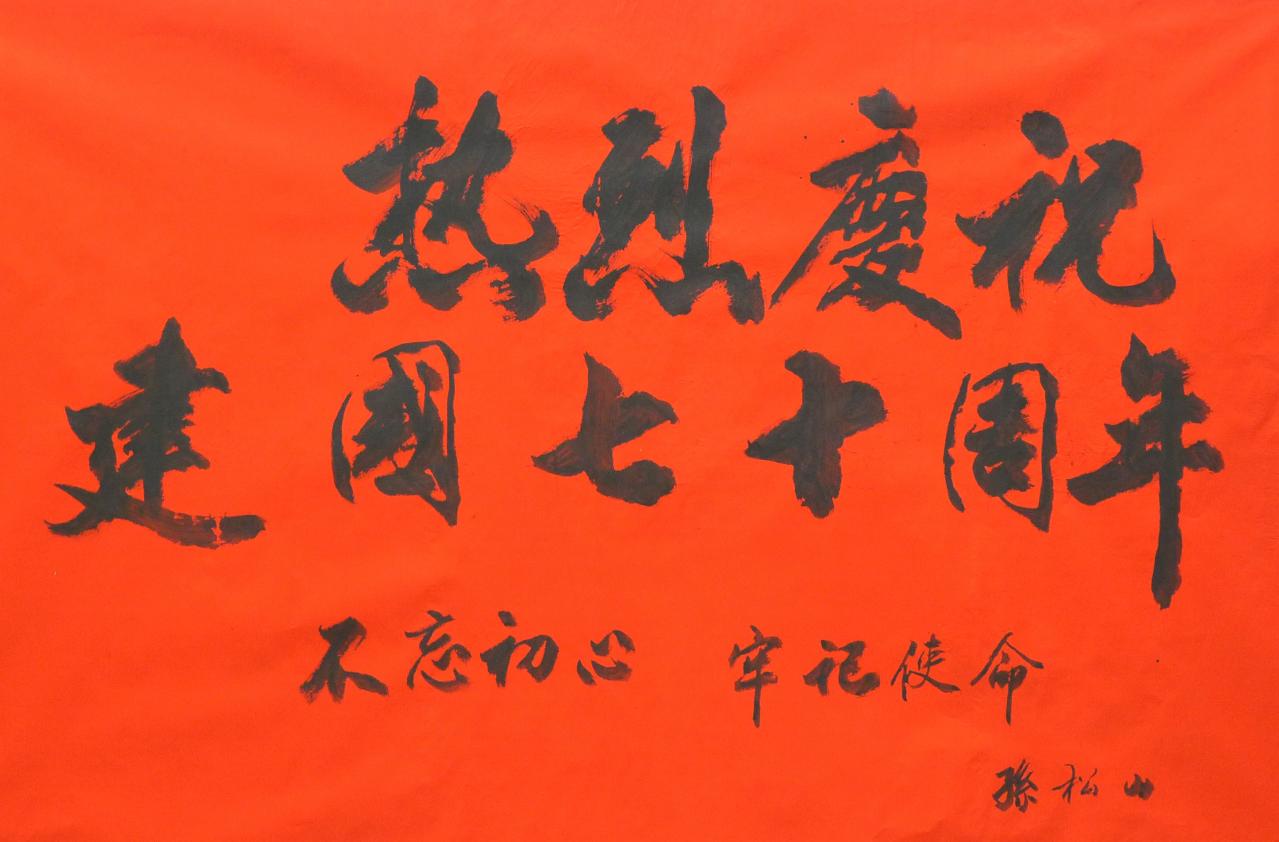 热烈慶祝
建國七十周年
不忘初心 牢记使命
孫松山